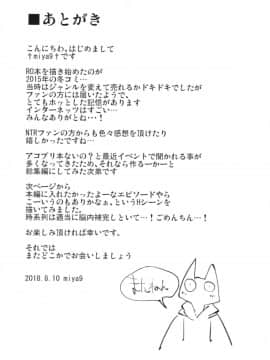 ■あとがき
こんにちわ。はじめまして
†miya9†です
RO本を描き始めたのが
2015年の冬コミ…
当時はジャンルを変えて売れるかドキドキでしたが
ファンの方には届いたようで、
とてもホッとした記憶があります
インターネッツはすごい…
みんなありがとね…!
NTRファンの方からも色々感想を頂けたり
嬉しかったですね…
アコプリ本ないの?と最近イベントで聞かれる事が
多くなってきたため、それなら作るーかーと
総集編にしてみた次第です
次ページから
本編に入れたかったよーなエピソードやら
こーいうのもありかなぁ。というHシーンを
描いてみました。
時系列は適当に脳内補完しといて…!ごめんちん…!
お楽しみ頂ければ幸いです。
それでは
またどこかでお会いしましょう
2018.8.10 miya9